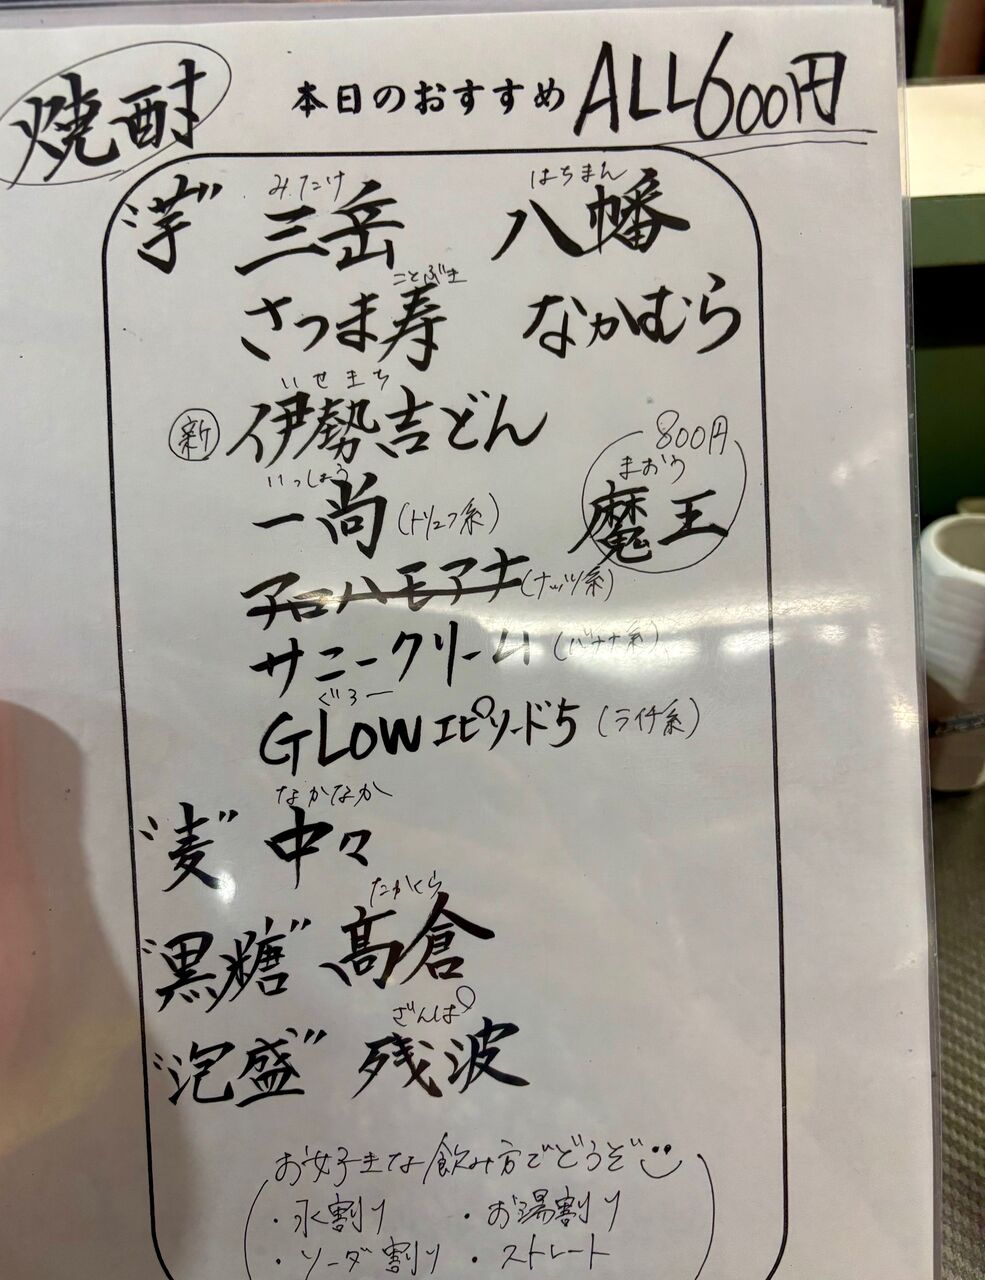 焼酎
本日のおすすめ ALL600円
"芋" 三岳 八幡
みたけ はちまん
さつま寿 なかむら
ことぶき
新 伊勢吉どん
いせきち
一尚(トリュフ系)
いっしょう
800円
まおう
魔王
チロハモアナ(ナッツ系)
サニークリーム(バナナ系)
GLOWエピソード5(ライチ系)
ぐろー
"麦" 中々
なかなか
"黒糖" 高倉
たかくら
"泡盛" 残波
ざんぱ
お好きな飲み方でどうぞ
・水割り ・お湯割り
・ソーダ割り ・ストレート